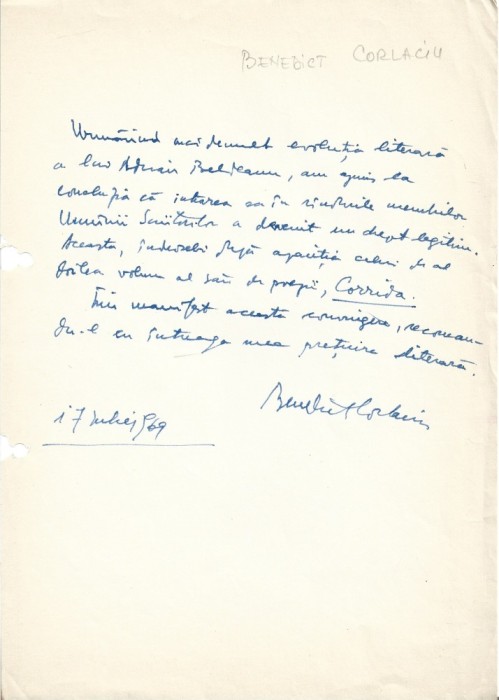 BENEDICT CORLACIU
Urmărind mai demult evoluția literară
a lui Adrian Beldeanu, am ajuns la
concluzia că intrarea sa în rîndurile membrilor
Uniunii Scriitorilor a devenit un drept legitim.
Aceasta, îndeosebi după apariția celui de-al
doilea volum al său de poezii, Corrida.
Îmi manifest această convingere, recoman-
du-l cu întreaga mea prețuire literară.
Benedict Corlaciu
17 iulie 1969